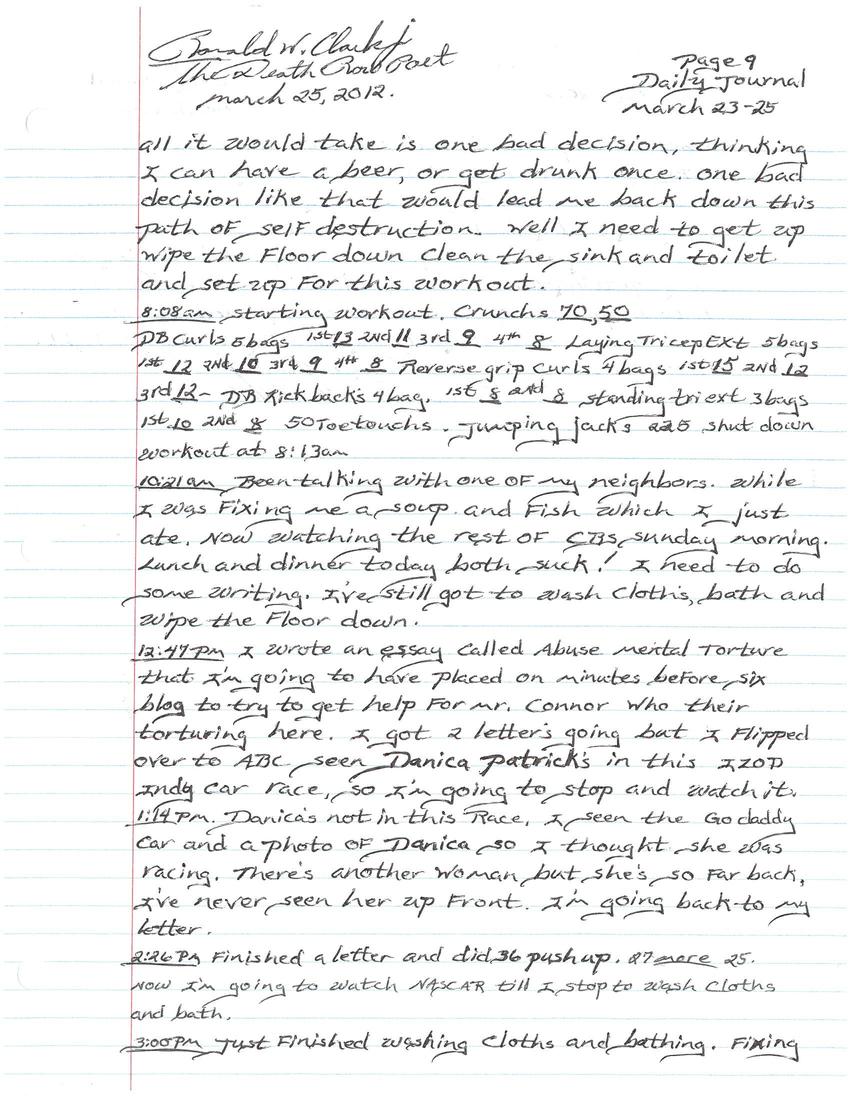 Ronald W. Clark jr
The Death Row Poet
march 25, 2012.
Page 9
Daily Journal
March 23-25
all it would take is one bad decision, thinking
I can have a beer, or get drunk once. one bad
decision like that would lead me back down this
path of self destruction. Well I need to get up
wipe the Floor down clean the sink and toilet
and set up For this workout.
8:08am starting workout. Crunchs 70, 50
DB Curls 5bags 1st 13 2nd 11 3rd 9 4th 8 Laying Tricep EXt 5bags
1st 12 2nd 10 3rd 9 4th 8 Reverse grip Curls 4bags 1st 15 2nd 12
3rd 12- DB Kickback's 4bag. 1st 8 2nd 8 standing tri ext 3bags
1st 10 2nd 8 50 Toetouchs. Jumping jacks 225 shut down
workout at 8:13am
10:21am Been talking with one of my neighbors. while
I was Fixing me a soup and Fish which I just
ate. Now watching the rest of CBS sunday morning.
Lunch and dinner today both suck! I need to do
some writing. I've still got to wash cloths, bath and
wipe the Floor down.
12:47pm I wrote an essay called Abuse mental Torture
that I'm going to have placed on minutes before six
blog to try to get help For mr. Connor who their
torturing here. I got 2 letter's going but I Flipped
over to ABC seen Danica Patrick's in this IZOD
Indy car race, so I'm going to stop and watch it.
1:14pm. Danica's not in this Race, I seen the Godaddy
Car and a photo of Danica so I thought she was
racing. There's another woman but she's so Far back,
I've never seen her up Front. I'm going back to my
letter.
2:26pm Finished a letter and did 36 pushup. 27 more 25.
Now I'm going to watch NASCAR till I stop to wash Cloths
and bath.
3:00pm Just Finished washing Cloths and bathing. Fixing